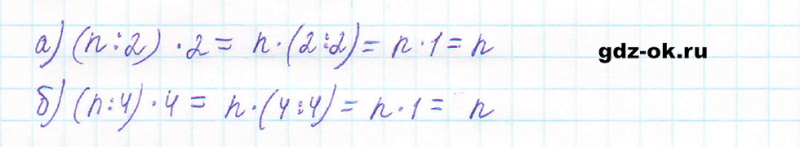 а) (n:2) · 2 = n · (2:2) = n · 1 = n
gdz-ok.ru
б) (n:4) · 4 = n · (4:4) = n · 1 = n